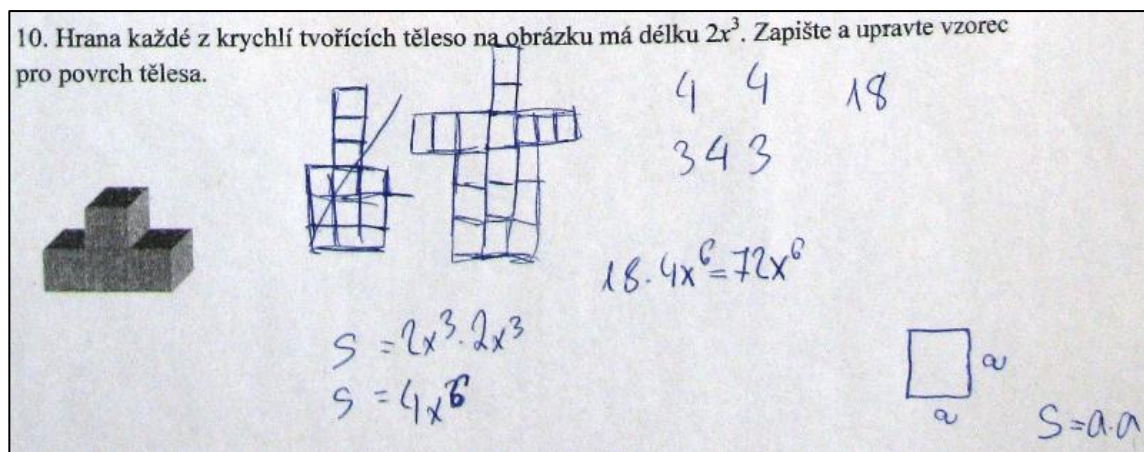 10. Hrana každé z krychlí tvořících těleso na obrázku má délku 2x³. Zapište a upravte vzorec
pro povrch tělesa.
4 4 18
3 4 3
18 · 4x⁶ = 72x⁶
S = 2x³ · 2x³
S = 4x⁶
a
a
S = a · a